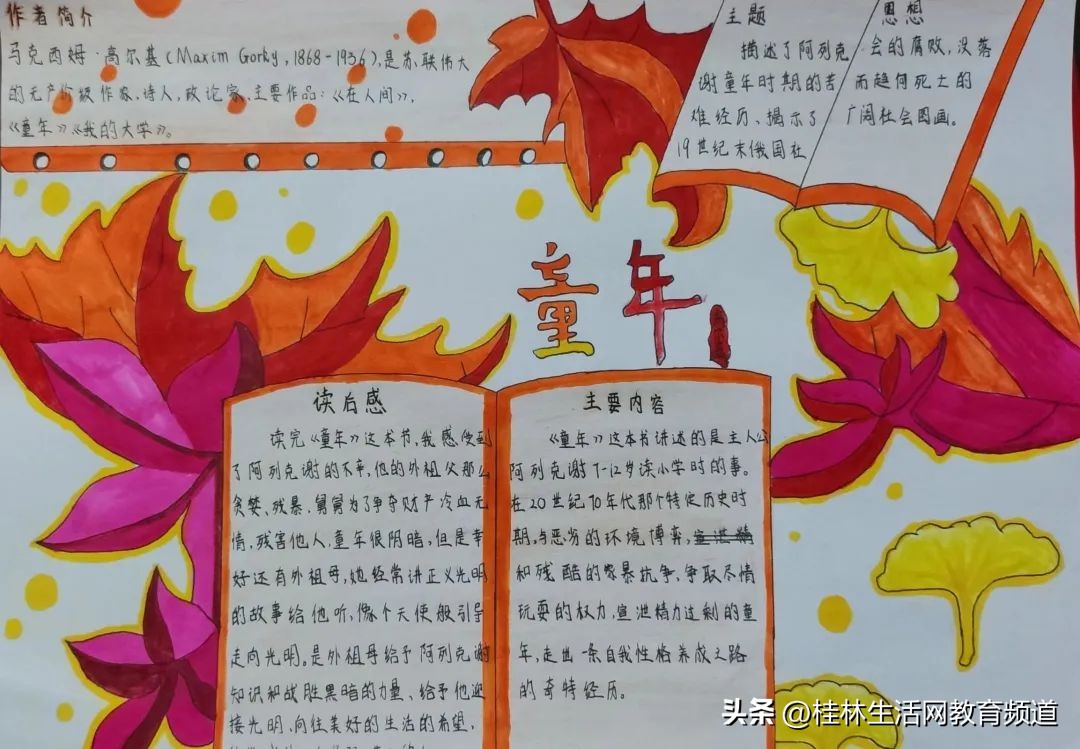 作者简介
马克西姆·高尔基(Maxim Gorky,1868-1936),是苏联伟大
的无产阶级作家、诗人,政论家,主要作品:《在人间》,
《童年》《我的大学》。
主题
描述了阿列克
谢童年时期的苦
难经历、揭示了
19世纪末俄国社
思想
会的腐败,没落
而趋向死亡的
广阔社会图画。
童年
读后感
读完《童年》这本书,我感受到
了阿列克谢的不幸,他的外祖父那么
贪婪、残暴、舅舅为了争夺财产冷血无
情,残害他人,童年很阴暗,但是幸
好还有外祖母,她经常讲正义光明
的故事给他听,像个天使般引导
走向光明。是外祖母给予阿列克谢
知识和战胜黑暗的力量、给予他迎
接光明,向往美好的生活的希望,
主要内容
《童年》这本书讲述的是主人公
阿列克谢7-12岁读小学时的事。
在20世纪70年代那个特定历史时
期,与恶劣的环境博弈,宣泄精
和残酷的家暴抗争,争取尽情
玩耍的权力,宣泄精力过剩的童
年,走出一条自我性格养成之路
的奇特经历。
头条 @桂林生活网教育频道